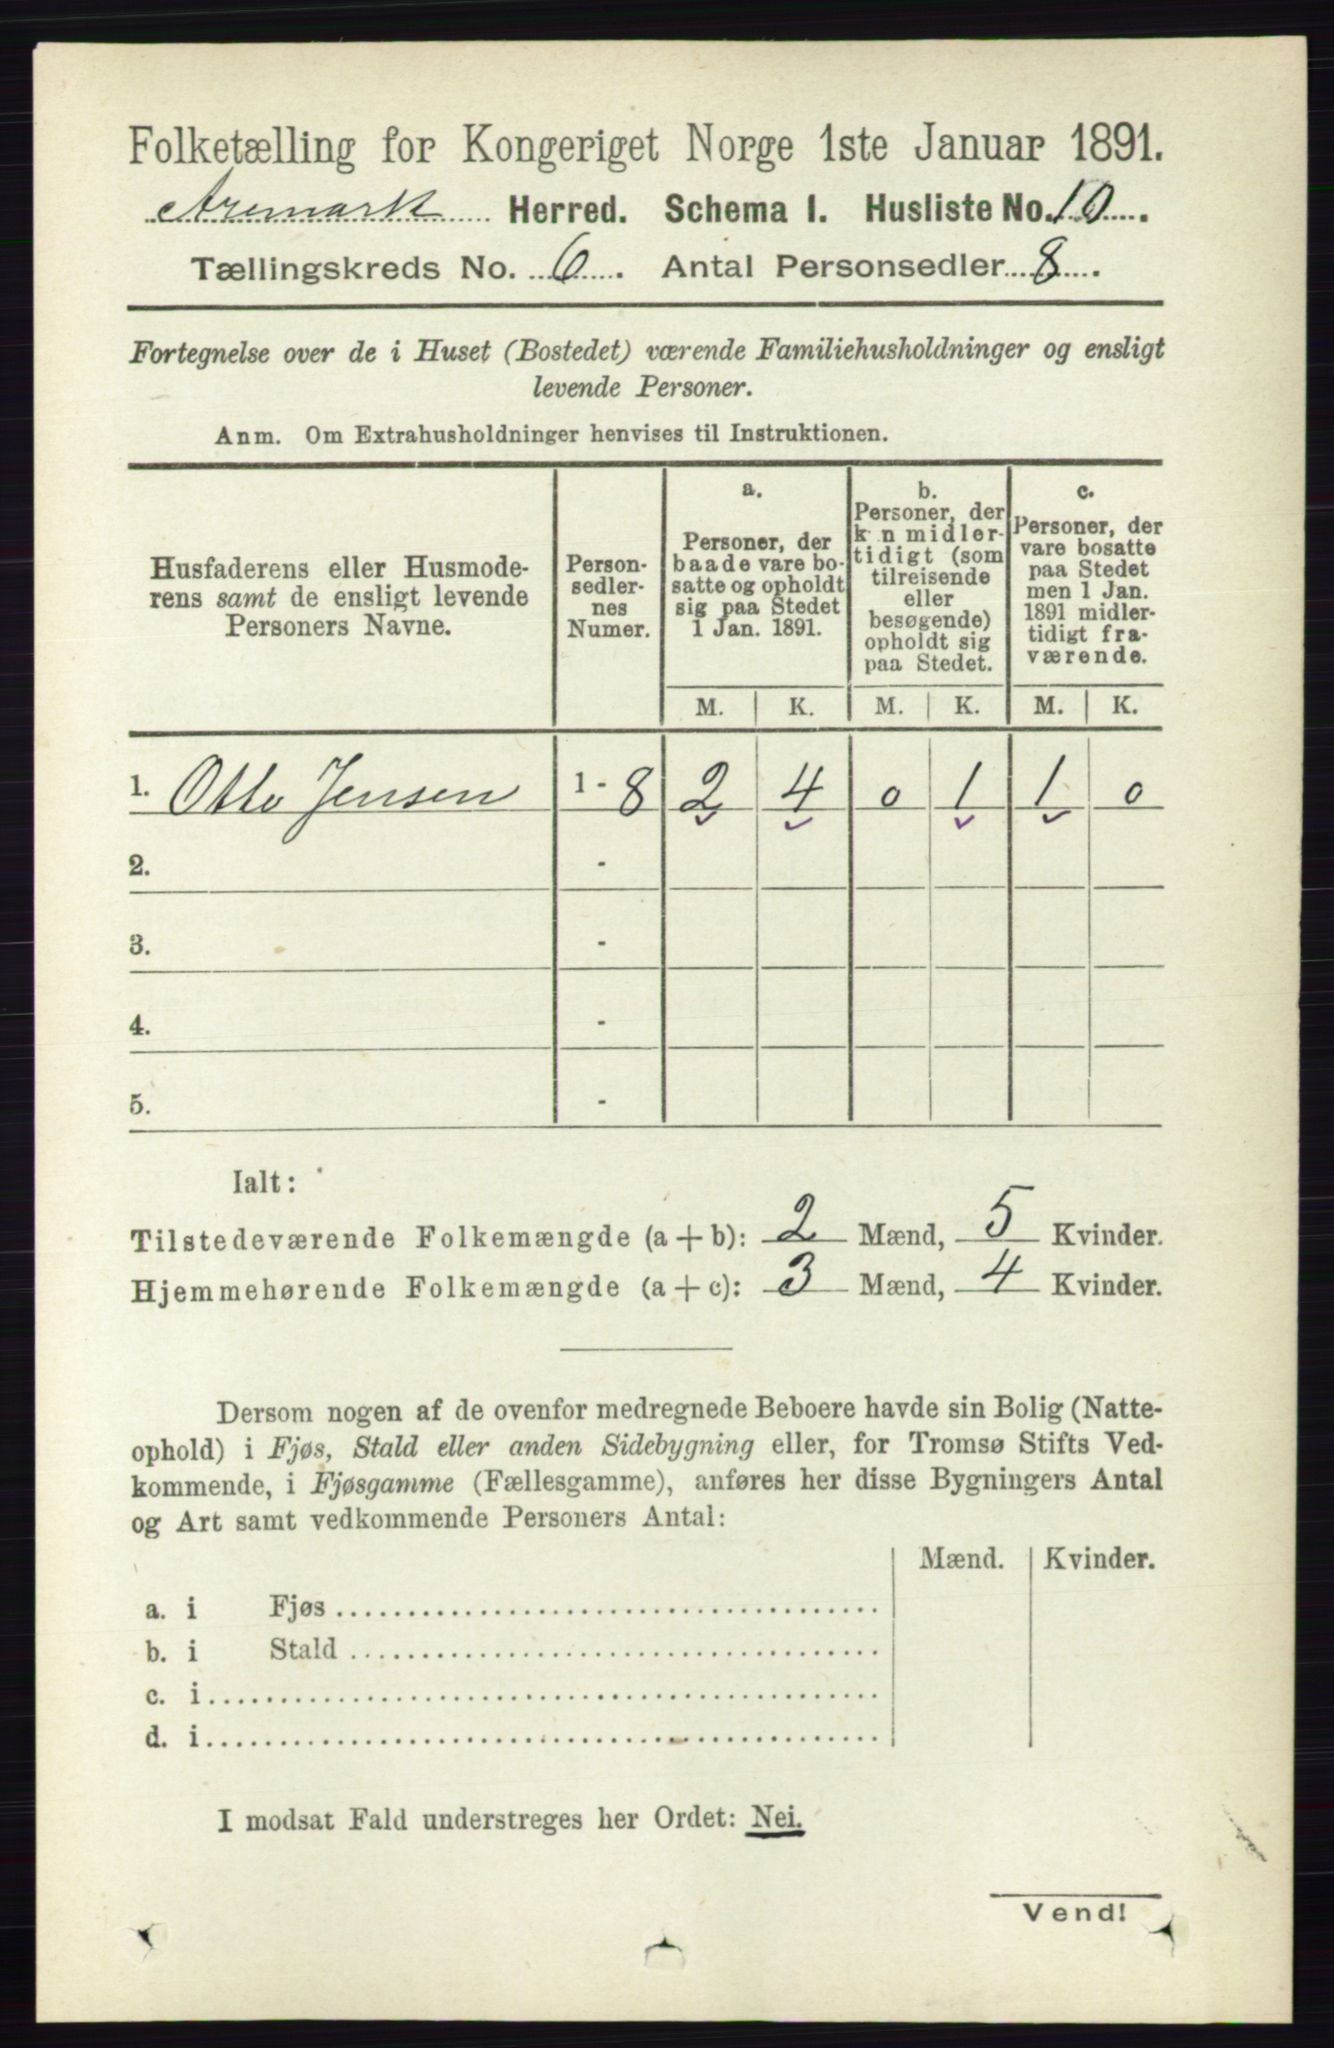 Folketælling for Kongeriget Norge 1ste Januar 1891.
Aremark Herred. Schema I. Husliste No. 10.
Tællingskreds No. 6. Antal Personsedler 8.
Fortegnelse over de i Huset (Bostedet) værende Familiehusholdninger og ensligt
levende Personer.
Anm. Om Extrahusholdninger henvises til Instruktionen.
Husfaderens eller Husmode-
rens samt de ensligt levende
Personers Navne.
Person-
sedler-
nes
Numer.
a.
Personer, der
baade vare bo-
satte og opholdt
sig paa Stedet
1 Jan. 1891.
b.
Personer, der
k n midler-
tidigt (som
tilreisende
eller
besøgende)
opholdt sig
paa Stedet.
c.
Personer, der
vare bosatte
paa Stedet
men 1 Jan.
1891 midler-
tidigt fra-
værende.
M. K. M. K. M. K.
1. Otto Jensen 1 - 8 2 4 0 1 1 0
2. -
3. -
4. -
5. -
Ialt:
Tilstedeværende Folkemængde (a + b): 2 Mænd, 5 Kvinder.
Hjemmehørende Folkemængde (a + c): 3 Mænd, 4 Kvinder.
Dersom nogen af de ovenfor medregnede Beboere havde sin Bolig (Natte-
ophold) i Fjøs, Stald eller anden Sidebygning eller, for Tromsø Stifts Ved-
kommende, i Fjøsgamme (Fællesgamme), anføres her disse Bygningers Antal
og Art samt vedkommende Personers Antal:
Mænd. Kvinder.
a. i Fjøs
b. i Stald
c. i
d. i
I modsat Fald understreges her Ordet: Nei.
Vend!